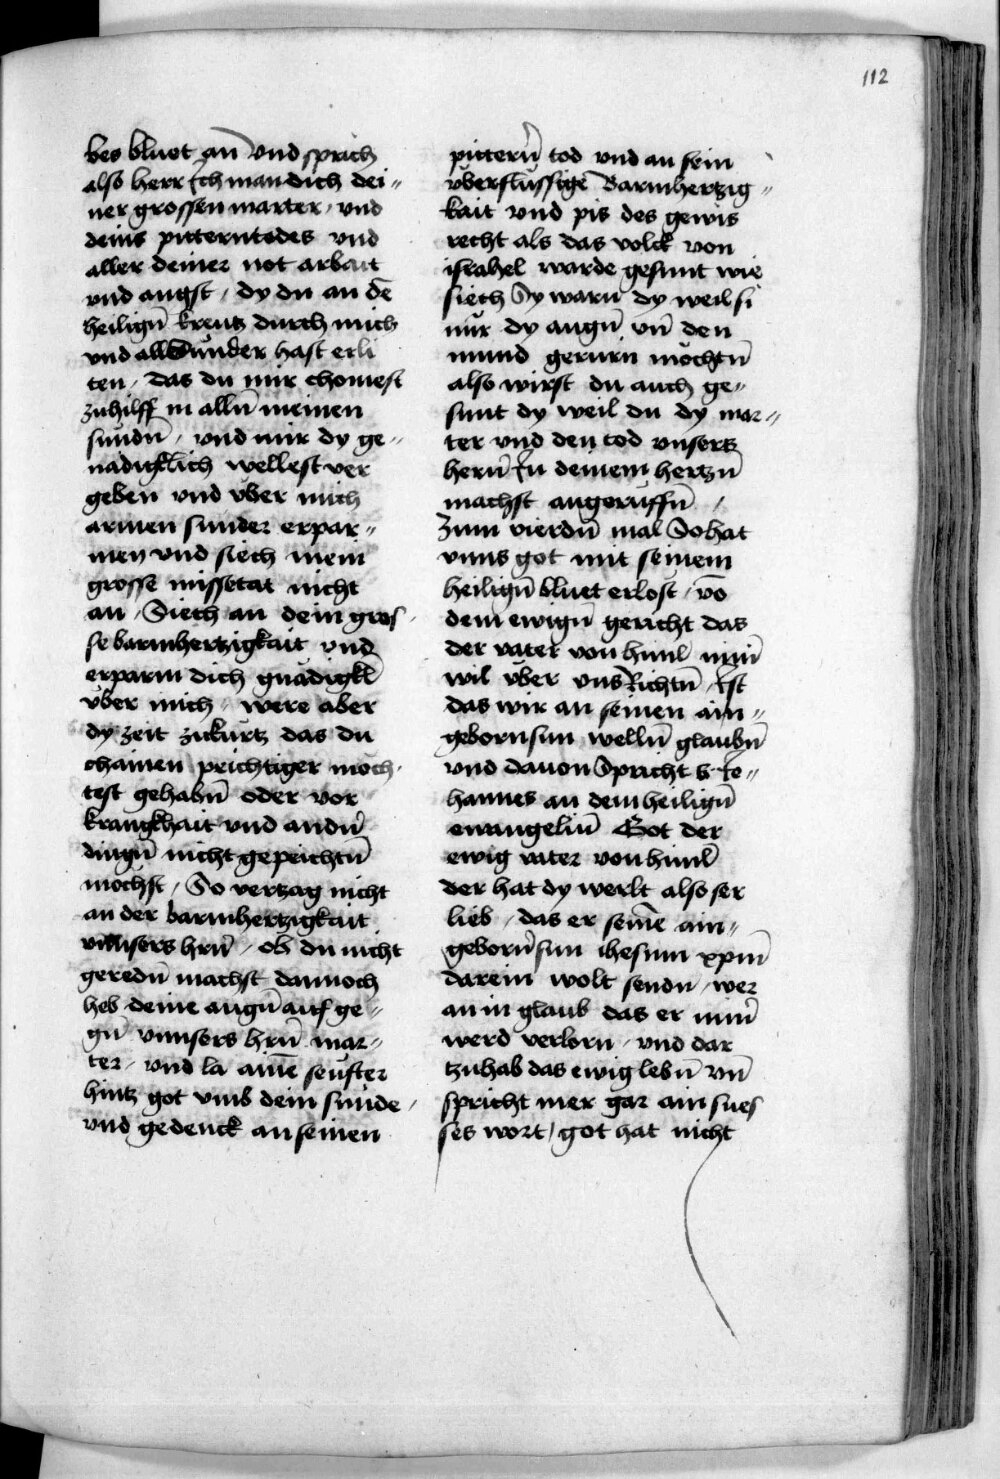 112
bes bluet an vnd sprich
also herr Ich man dich dei„
ner grossen marter / vnd
deins pitterntodes vnd
aller deiner not arbait
vnd angst / dy du an dē
heiligū kreutz durch mich
vnd all Sunder hast erli
ten / das du mir chomest
zuhilff in allū meinen
sundū / vnd mir dy ge„
nadigklich wellest ver
geben vnd vber mich
armen sunder erpar„
men vnd siech mein
grosse missetat nicht
an / Siech an dein gros
se barmhertzigkait vnd
erparm dich gnadigkl̄
vber mich / were aber
dy zeit zukurtz das du
chainen peichtiger moch
test gehabū oder vor
krangkhait vnd andū
dingū nicht gepeichtū
mochst / So vertzag nicht
an der barmhertzigkait
vnsers hrū / ob du nicht
geredū machst dannoch
heb deine augū auf ge„
gū vnnsers hrū mar„
ter / vnd la ainē seufter
hintz got vmb dein sunde /
vnd gedenck an seinen
pitterū tod vnd an sein
vberflussige Barmhertzig„
kait vnd pis des gewis
recht als das volck von
israhel warde gesunt wie
siech Sy warū dy weil si
nur dy augū vū den
mund gerurn mochtū
also wirst du auch ge„
sunt dy weil du dy mar„
ter vnd den tod vnsers
herū In deinem hertzū
machst angeruffū /
Zum vierdū mal So hat
vnns got mit seinem
heiligū bluet erlost / vō
dem ewigū gericht das
der vater von himl̄ nimū
wil vber vns Richtū / Ist
das wir an seinen ain„
geborn sun wellū glaubū
vnd dauon Spricht S Io„
hannes an dem heiligū
ewangeliū Got der
ewig vater von himl̄
der hat dy werlt also ser
lieb / das er seinē ain„
geborū sun ihesum xpm̄
darein wolt sendn / wer
an in glaub das er nimū
werd verlorn / vnd dar
tzuhab das ewig lebū vū
spricht mer gar ain sues
ses wort / got hat nicht